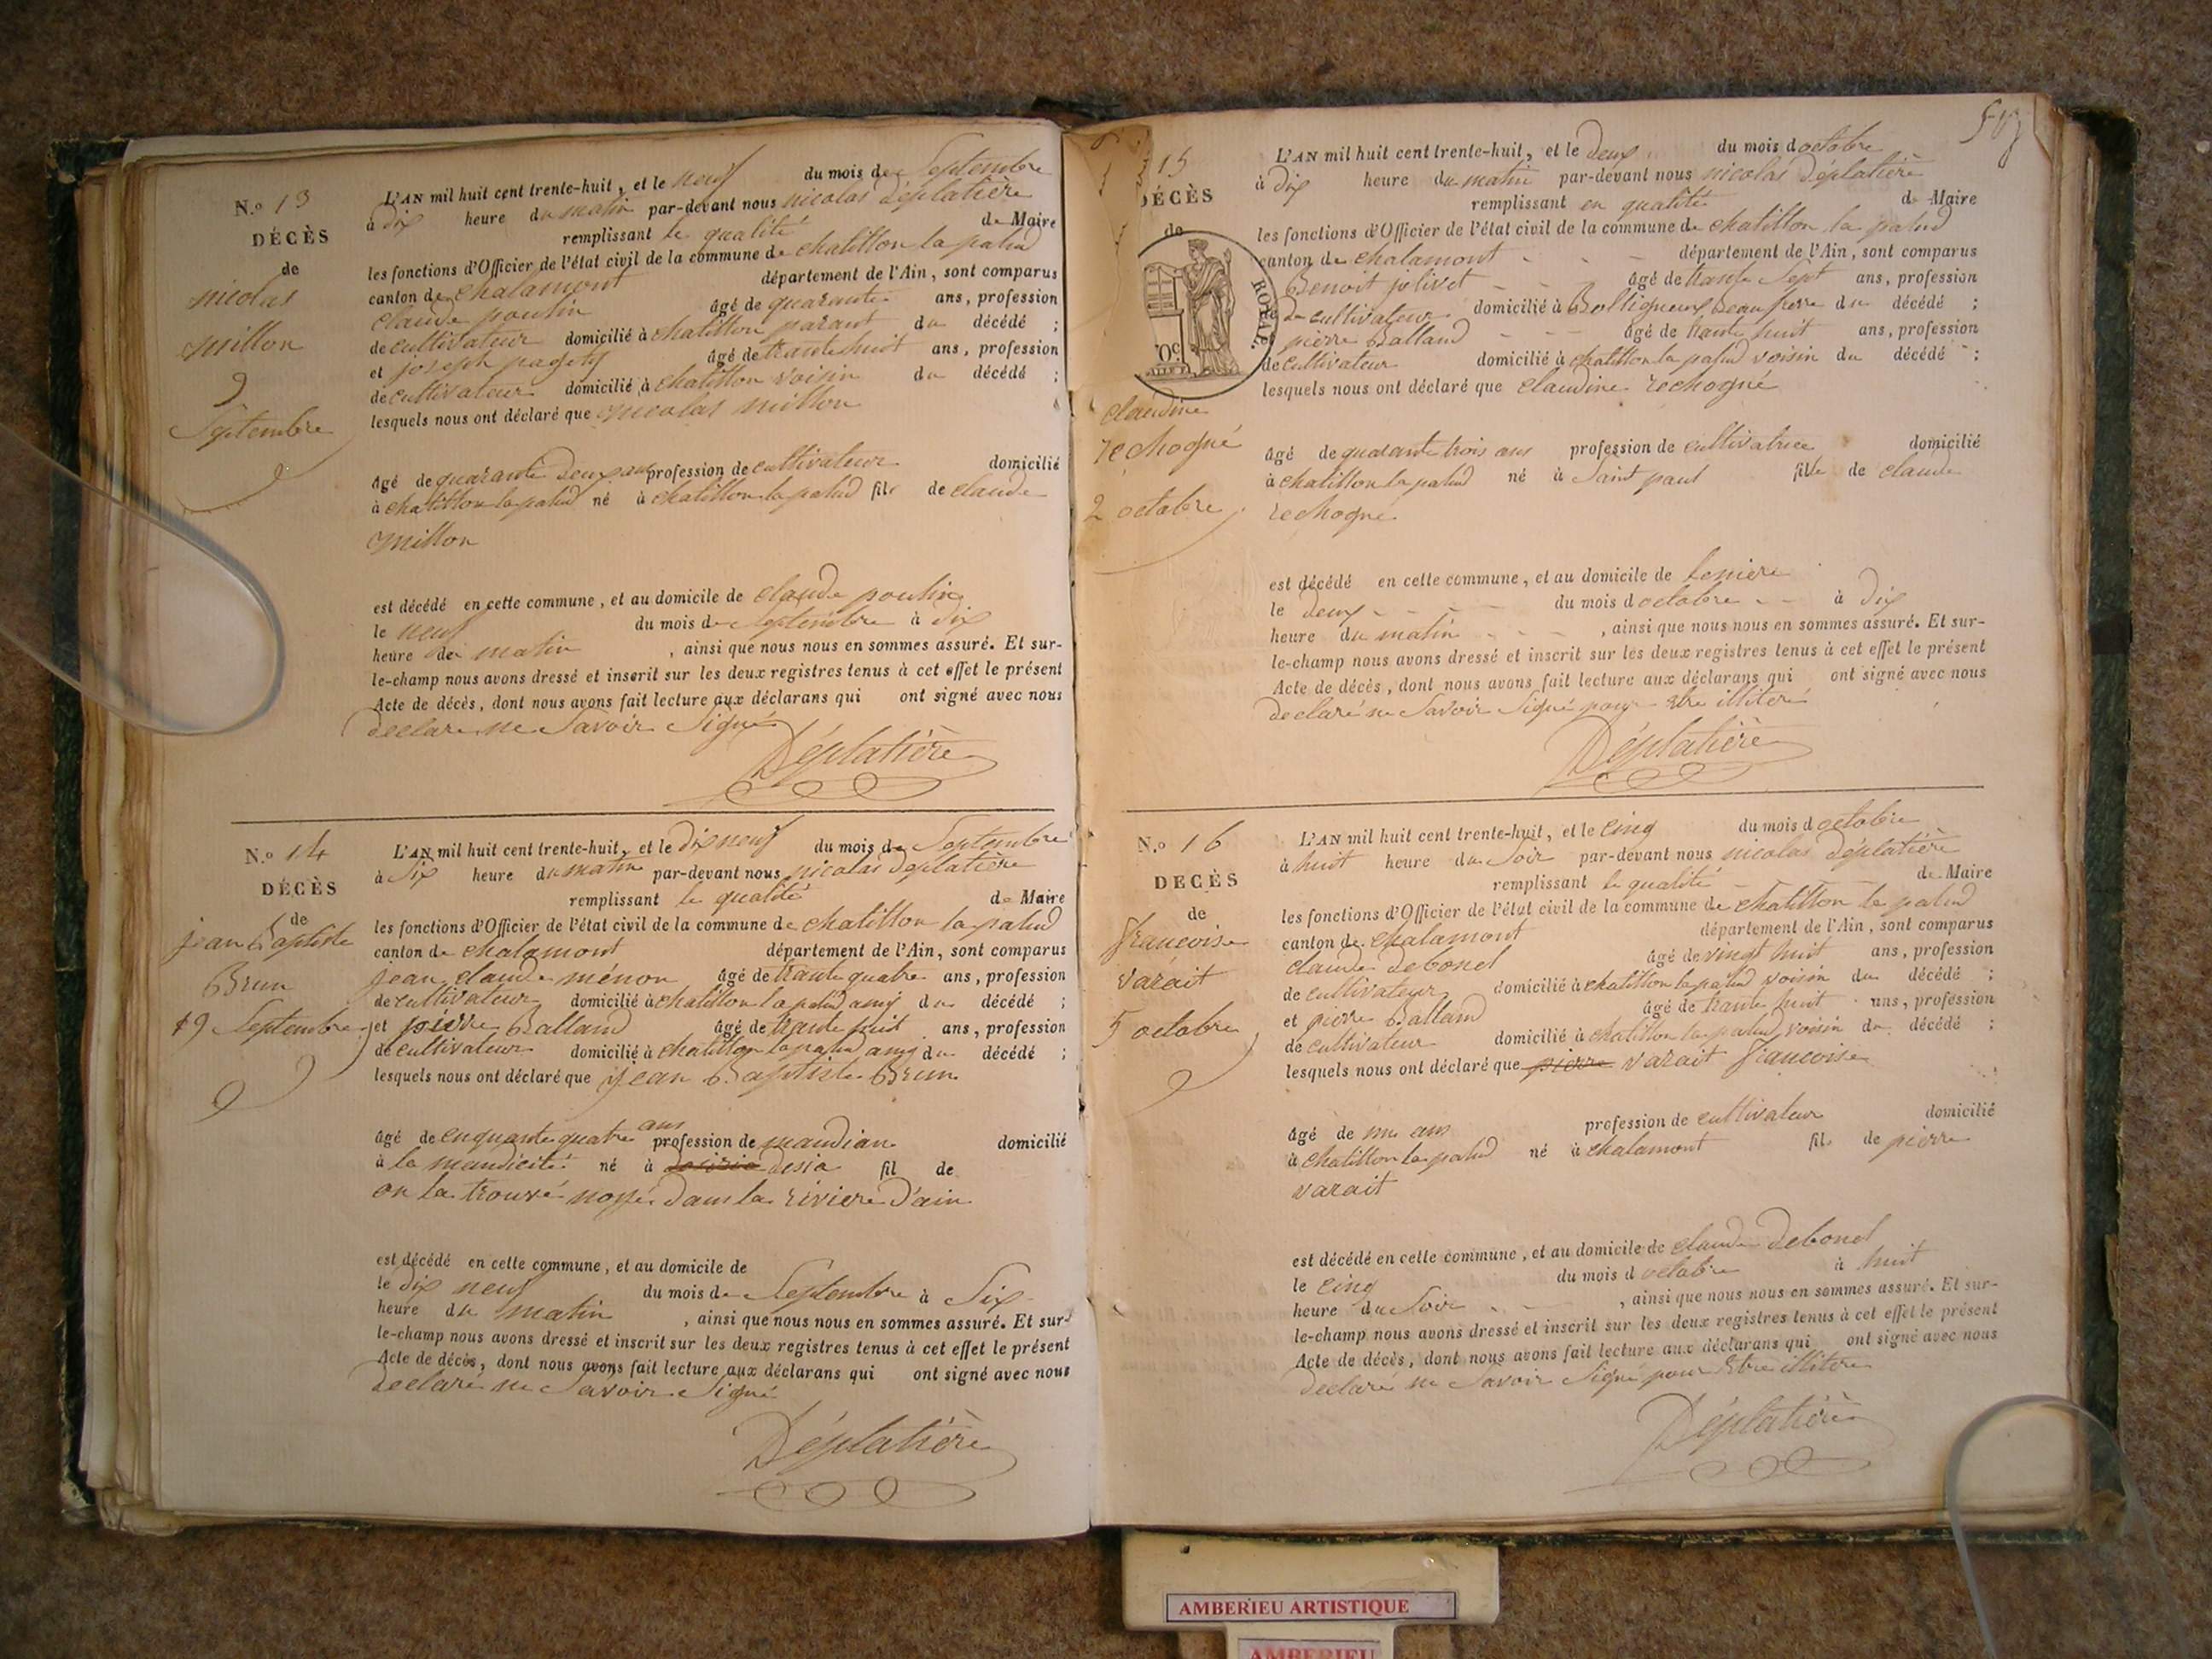 N.º 13
DÉCÈS
de
nicolas
millon
9
Septembre
L'AN mil huit cent trente-huit, et le neuf du mois de Septembre
à dix heure du matin par-devant nous nicolas Déplatière
remplissant le qualité de Maire
les fonctions d'Officier de l'état civil de la commune de chatillon la palud
canton de chalamont département de l'Ain, sont comparus
claude poulin âgé de quarante ans, profession
de cultivateur domicilié à chatillon parant du décédé ;
et joseph âgé de trante huit ans, profession
de cultivateur domicilié à chatillon voisin du décédé ;
lesquels nous ont déclaré que nicolas millon
âgé de quarante deux ans profession de cultivateur domicilié
à chatillon la palud né à chatillon la palud fils de claude
millon
est décédé en cette commune, et au domicile de claude poulin
le neuf du mois de Septembre à dix
heure du matin , ainsi que nous nous en sommes assuré. Et sur-
le-champ nous avons dressé et inscrit sur les deux registres tenus à cet effet le présent
Acte de décès, dont nous avons fait lecture aux déclarans qui ont signé avec nous
declaré ne Savoir Signé
Déplatière
N.º 14
DÉCÈS
de
jean Baptiste
Brun
19 Septembre
L'AN mil huit cent trente-huit, et le dix neuf du mois de Septembre
à Six heure du matin par-devant nous nicolas Déplatière
remplissant le qualité de Maire
les fonctions d'Officier de l'état civil de la commune de chatillon la palud
canton de chalamont département de l'Ain, sont comparus
jean claude ménon âgé de trante quatre ans, profession
de cultivateur domicilié à chatillon la palud amy du décédé ;
et pierre Balland âgé de trante huit ans, profession
de cultivateur domicilié à chatillon la palud amy du décédé ;
lesquels nous ont déclaré que jean Baptiste Brun
âgé de cnquante quatre ans profession de mandian domicilié
à la mandicité né à desia fil de
on la trouvé noyé dans la rivière d'ain
est décédé en cette commune, et au domicile de
le dix neuf du mois de Septembre à Six
heure du matin , ainsi que nous nous en sommes assuré. Et sur-
le-champ nous avons dressé et inscrit sur les deux registres tenus à cet effet le présent
Acte de décès, dont nous avons fait lecture aux déclarans qui ont signé avec nous
declaré ne Savoir Signé
Déplatière
15
DÉCÈS
de
ROYAL.
claudine
rechogné
2 octobre
L'AN mil huit cent trente-huit, et le deux du mois d octobre
à dix heure du matin par-devant nous nicolas Déplatière
remplissant en qualité de Maire
les fonctions d'Officier de l'état civil de la commune de chatillon la palud
canton de chalamont département de l'Ain, sont comparus
Benoit jolivet âgé de trante Sept ans, profession
de cultivateur domicilié à Beaufrere du décédé ;
pierre Balland âgé de trante huit ans, profession
de cultivateur domicilié à chatillon la palud voisin du décédé ;
lesquels nous ont déclaré que claudine rechogné
âgé de quarante trois ans profession de cultivatrice domicilié
à chatillon la palud né à Saint paul fille de claude
rechogné
est décédé en cette commune, et au domicile de
le deux du mois d octobre à dix
heure du matin , ainsi que nous nous en sommes assuré. Et sur-
le-champ nous avons dressé et inscrit sur les deux registres tenus à cet effet le présent
Acte de décès, dont nous avons fait lecture aux déclarans qui ont signé avec nous
declaré ne Savoir Signé pour Etre illitéré
Déplatière
N.º 16
DECÈS
de
francoise
varait
5 octobre
L'AN mil huit cent trente-huit, et le cinq du mois d octobre
à huit heure du Soir par-devant nous nicolas Déplatière
remplissant le qualité de Maire
les fonctions d'Officier de l'état civil de la commune de chatillon la palud
canton de chalamont département de l'Ain, sont comparus
claude Debonel âgé de vingt huit ans, profession
de cultivateur domicilié à chatillon la palud voisin du décédé ;
et pierre Balland âgé de trante huit ans, profession
de cultivateur domicilié à chatillon la palud voisin du décédé ;
lesquels nous ont déclaré que pierre varait francoise
âgé de ans profession de cultivateur domicilié
à chatillon la palud né à chalamont fils de pierre
varait
est décédé en cette commune, et au domicile de claude Debonel
le cinq du mois d octobre à huit
heure du Soir , ainsi que nous nous en sommes assuré. Et sur-
le-champ nous avons dressé et inscrit sur les deux registres tenus à cet effet le présent
Acte de décès, dont nous avons fait lecture aux déclarans qui ont signé avec nous
declaré ne Savoir Signé pour Etre illitéré
Déplatière
AMBERIEU ARTISTIQUE
AMBERIEU